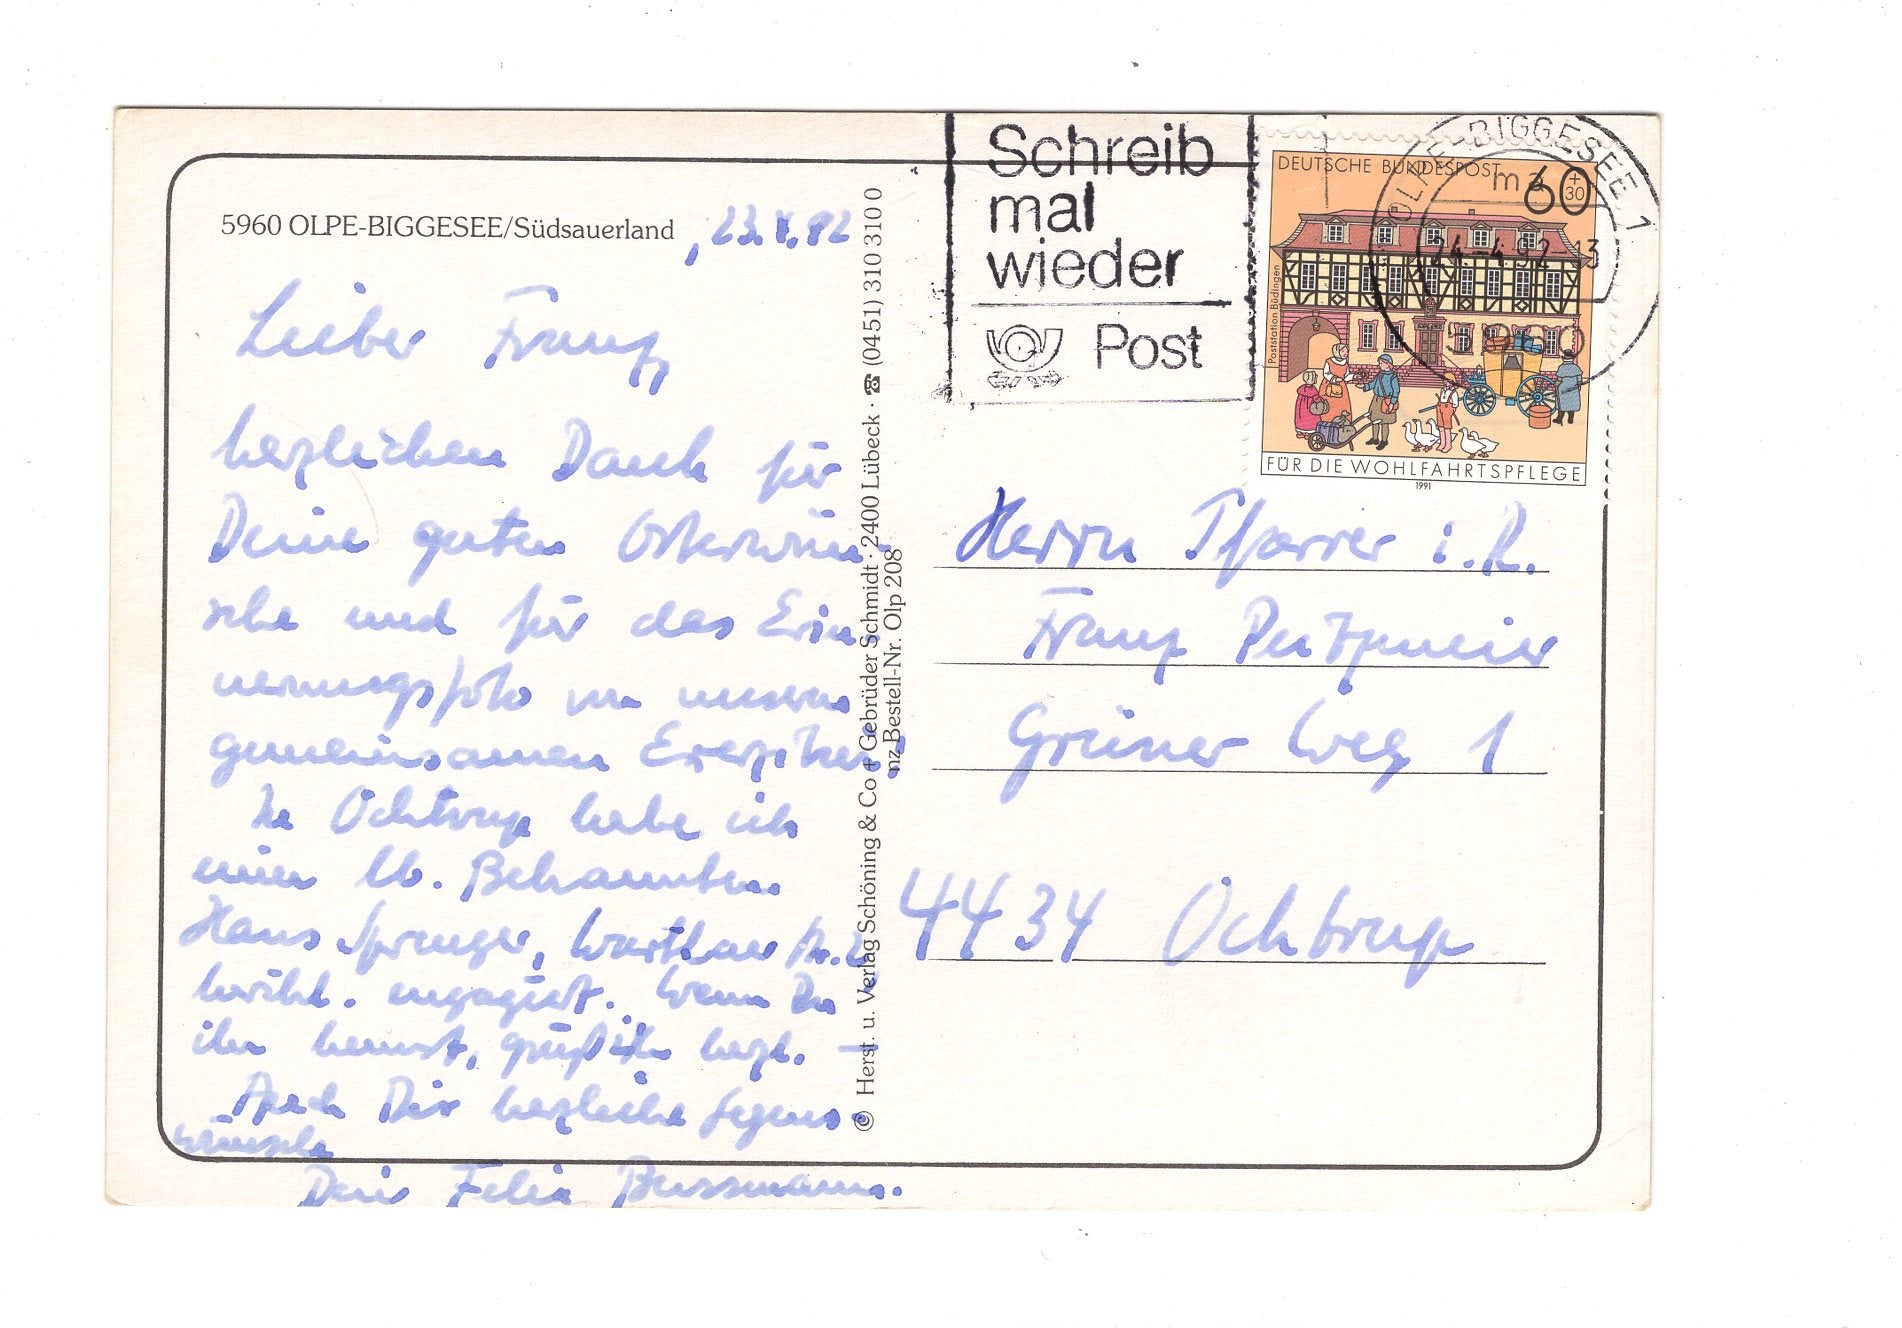 5960 OLPE-BIGGESEE/Südsauerland , 23. . 92
Lieber Franz
herzlichen Dank für
Deine guten Osterwün-
sche und für das Erin-
nerungsfoto von unseren
gemeinsamen Exerzitien.
In Ochtrup habe ich
einen lb. Bekannten
Hans Sprenger,
kirchl. engagiert. Wenn Du
ihn kennst, grüß ihn herzl. –
Auch Dir herzliche Segens-
wünsche
Dein Felix Bussmann.
© Herst. u. Verlag Schöning & Co + Gebrüder Schmidt · 2400 Lübeck · ☎ (0451) 310 310 0
nz Bestell-Nr. Olp 208
Schreib
mal
wieder
Post
DEUTSCHE BUNDESPOST
60 + 30
Poststation Büdingen
FÜR DIE WOHLFAHRTSPFLEGE
1991
OLPE-BIGGESEE 1
ma
24.-4.92-13
5960
Herrn Pfarrer i. R.
Franz Peitzmeier
Grüner Weg 1
4434 Ochtrup